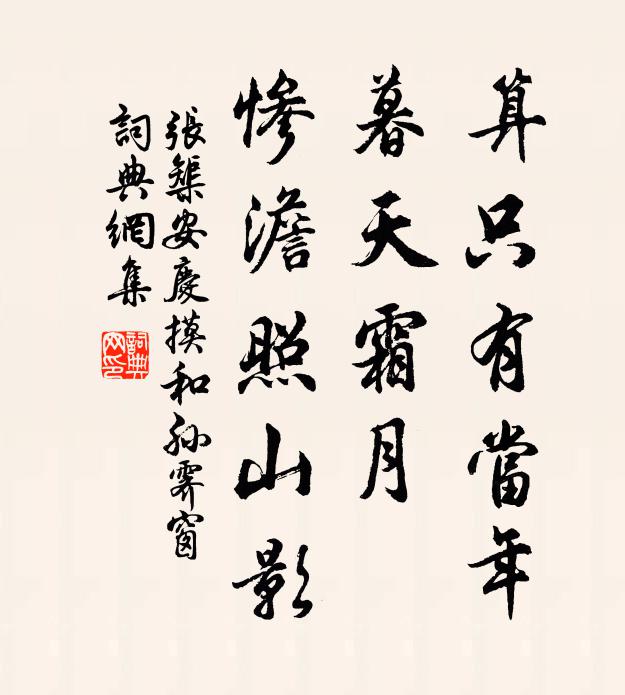 算只有當年
暮天霜月
慘澹照山影
張榘安慶摸和孙霽窗
詞典網集
詞典网印